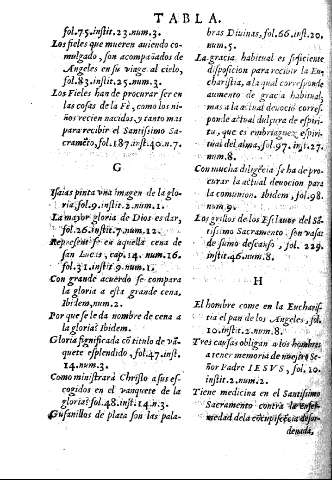 TABLA.
fol.75.instit.23.num.3.
Los fieles que mueren auiendo co-
mulgado, son acompañados de
Angeles en su viage al cielo,
fol.83.instit.25.num.3.
Los Fieles han de procurar ser en
las cosas de la Fè, como los ni-
ños rezien nacidos, y tanto mas
para recibir el Santissimo Sa-
cramẽto, fol.187.inst.40.n.7.
G
Isaias pinta vna imagen de la glo-
ria, fol.9.instit.2.num.1.
La mayor gloria de Dios es dar,
fol.26.instit.7.num.12.
Represent se en aquella cena de
san Lucas, cap.14. num.16.
fol.31.instit.9.num.1.
Con grande acuerdo se compara
la gloria a esta grande cena,
Ibidem, num.2.
Por que se le da nombre de cena a
la gloria? Ibidem.
Gloria significada cõ titulo de vã-
quete esplendido, fol.47.inst.
14.num.3.
Como ministrarà Christo a sus es-
cogidos en el vanquete de la
gloria? fol.48.inst.14.n.3.
Gusanillos de plata son las pala-
bras Diuinas, fol.66.inst.20.
num.5.
La gracia habitual es suficiente
disposicion para recibir la Eu-
charistia, a la qual corresponde
aumento de gracia habitual,
mas a la actual deuociõ corres-
ponde actual dulçura de espiri-
tu, que es embriaguez espiri-
tual del alma, fol.97.inst.27.
num.8.
Con mucha diligẽcia se ha de pro-
curar la actual deuocion para
la comunion. Ibidem, fol.98.
num.9.
Los grillos de los Esclauos del Sã-
tissimo Sacramento son vasos
de sumo descanso, fol. 229.
instit.46.num.8.
H
El hombre come en la Eucharis-
tia el pan de los Angeles, fol.
10.instit.2.num.8.
Tres causas obligan a los hombres
a tener memoria de nuestro Se-
ñor Padre IESVS, fol.10.
instit.2.num.2.
Tiene medicina en el Santissimo
Sacramento contra la enfer-
medad de la cõcupiscẽcia desor-
denada,